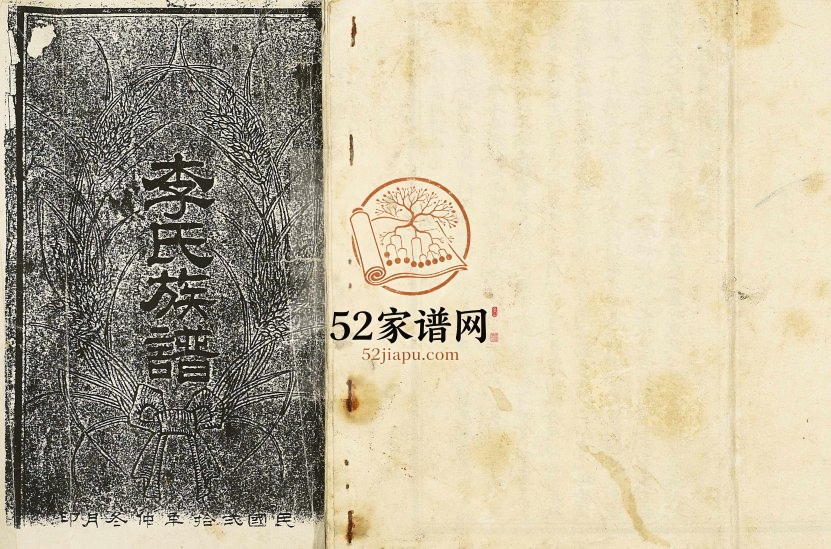 李氏族譜
民國貳拾年仲冬月印
52家谱网
52jiapu.com